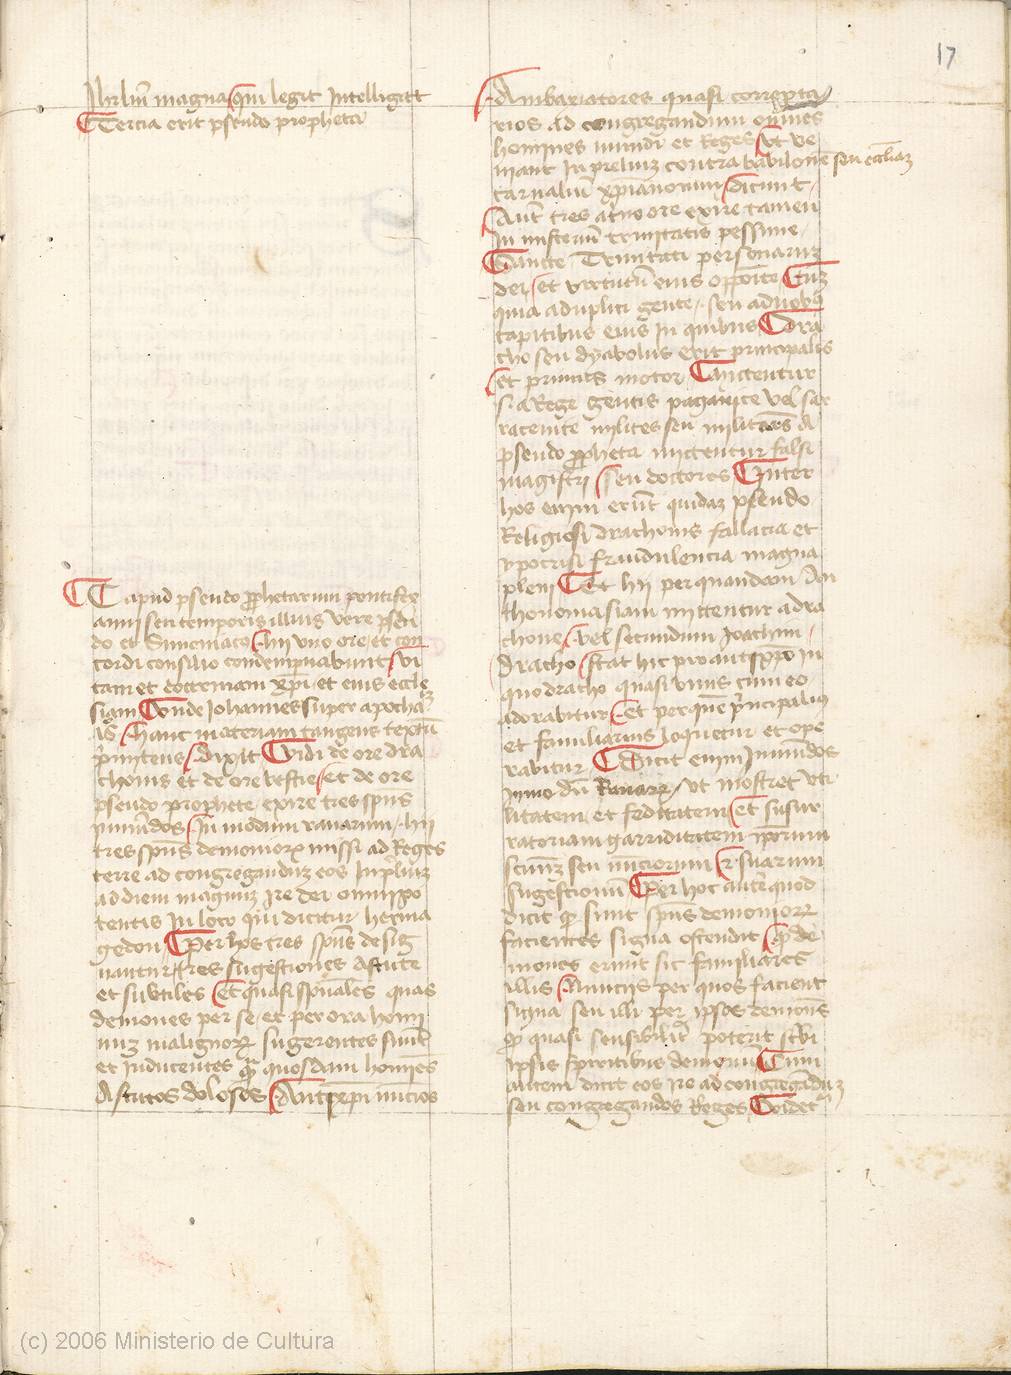 17
magna qui legit intelligat
Tercia erit pseudo propheta
Capud pseudo prophetarum pontifice
anni seu temporis illius vere pseu
do et Simoniaco hii uno ore et con
cordi consilio condempnabunt vi
tam et doctrinam xpi et eius eccle
siam Vnde Johannes super apocha
is hanc materiam tangens textu
primitens dixit Vidi de ore dra
chonis et de ore bestie et de ore
pseudo prophete exire tres spus
inmudos In modum ranarum hii
tres spus demoniorum missi ad Reges
terre ad congregandum eos In prelium
ad diem magnum ire dei omnipo
tentis In loco qui dicitur herma
gedon Per hos tres spus desig
nantur tres sugestiones Astute
et subtiles Et quasi spuales quas
demones per se et per ora homi
num malignorum sugerentes sunt
et Inducentes quosdam homines
Astutos dolosos Antixpi nuncios
Ambaxiatores quasi correpta
rios Ad congregandum omnes
homines mundi et Reges vt ve
niant In prelium contra babilonem seu eccliam
carnalium xpianorum dicunt
Aut tres uno ore exire tamen
In misterium trinitatis pessime
Sancte Trinitati personarum
dei et virtutum eius opposite Tum
quia a duplici gente seu a duobus
capitibus eius In quibus Dra
cho seu dyabolus erit principalis
et primus motor Ca mittentur
si a Rege gentis paganice vel sar
racenice milites seu militares A
pseudo propheta mittentur falsi
magistri seu doctores Inter
hos enim erunt quidam pseudo
Religiosi drachonis fallacia et
ypocrisi fraudulencia magna
pleni Et hii per quandam An
thonomasiam mittentur a dra
chone vel secundum Joachim
dracho stat hic pro antixpo In
quo dracho quasi vnus cum eo
adorabitur Et per quem principalius
et familiarius loquetur et ope
rabitur Dicit enim Inmundos
In modum Ranarum vt mostret vti
litatem et feditatem et susur
ratoriam garriditatem ipsorum
seu nunciorum et suarum
sugestionum Per hoc autem quod
dicit quod sunt spus demoniorum
facientes signa ostendit quod de
mones erunt sic familiares
illis Nunciis per quos facient
signa seu illi per ipsos demones
quod quasi sensibiliter poterit
ipsis spiritibus demonum Cum
autem dicit eos ire ad congregandum
seu congregandos Reges Videtur
(c) 2006 Ministerio de Cultura